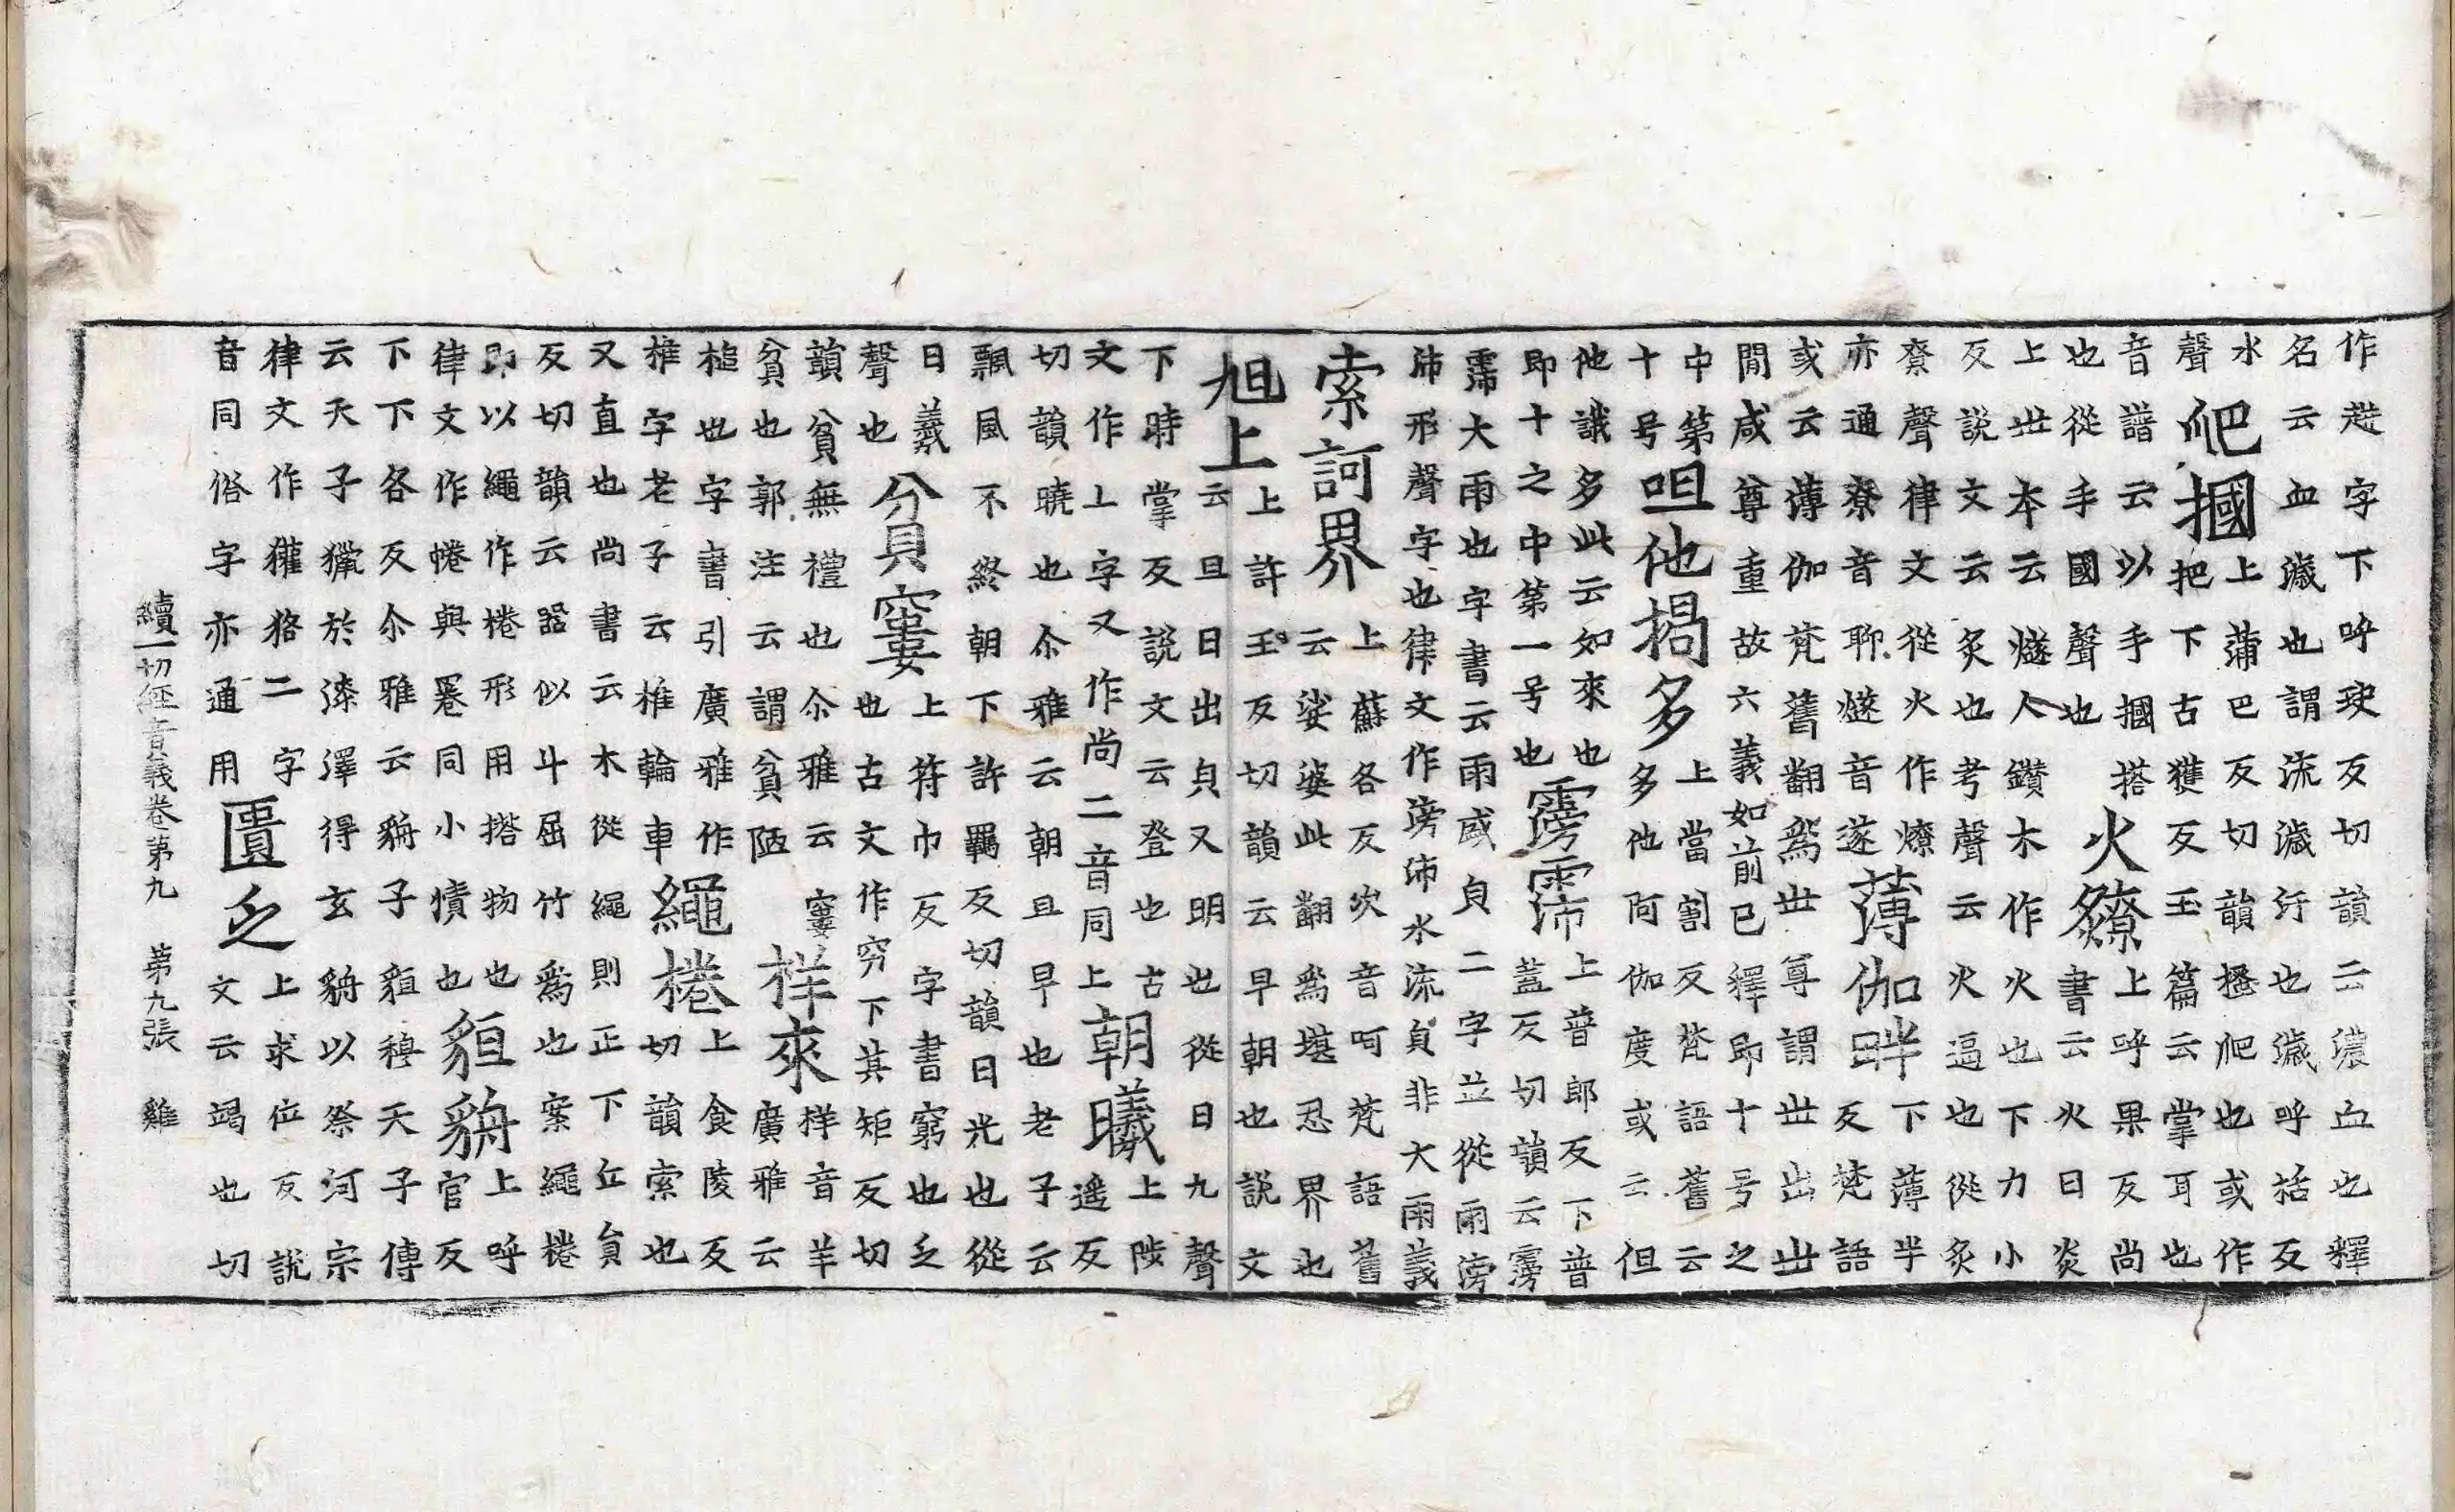 作趑字下呼㕟反切韻云濃血也釋
名云血濊也謂流濊汙也濊呼括反
水
聲
爬摑
上蒲巴反切韻搔爬也或作
把下古獲反玉篇云掌耳也
音譜云以手摑搭
也從手國聲也
火𤊽
上呼果反尚
書云火曰炎
上丗本云燧人鑽木作火也下力小
反說文云炙也考聲云火逼也從炙
尞聲律文從火作燎
亦通尞音聊燧音遂
薄伽畔
下薄半
反梵語
或云薄伽梵舊翻為丗尊謂丗出丗
間咸尊重故六義如前已釋即十号之
中第
十号
呾他揭多
上當割反梵語舊云
多他阿伽度或云但
他誐多此云如來也
即十之中第一号也
霶霈
上普郎反下普
蓋反切韻云霶
霈大雨也字書云雨盛皃二字並從雨滂
沛形聲字也律文作滂沛水流皃非大雨義
索訶界
上蘇各反次音呵梵語舊
云娑婆此翻為堪忍界也
旭上
上許玉反切韻云早朝也說文
云旦日出皃又明也從日九聲
下時掌反說文云登也古
文作⊥字又作尚二音同上
朝曦
上陟
遙反
切韻曉也尒雅云朝旦早也老子云
飄風不終朝下許羈反切韻日光也從
日義
聲也
貧窶
上符巾反字書窮也乏
也古文作穷下其矩反切
韻貧無禮也尒雅云窶
貧也郭注云謂貧陋
样來
样音羊
廣雅云
槌也字書引廣雅作
椎字老子云椎輪車
繩棬
上食陵反
切韻索也
又直也尚書云木從繩則正下丘負
反切韻云器似斗屈竹為也案繩棬
即以繩作棬形用搭物也
律文作帣與罤同小幘也
貆貈
上呼
官反
下下各反尒雅云貈子貆穆天子傳
云天子獵於漆澤得玄貈以祭河宗
律文作獾狢二字
音同俗字亦通用
匱乏
上求位反說
文云竭也切
續一切經音義卷第九 第九張 雞